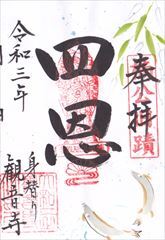 奉拝
四恩
令和三年
身替り
観音寺